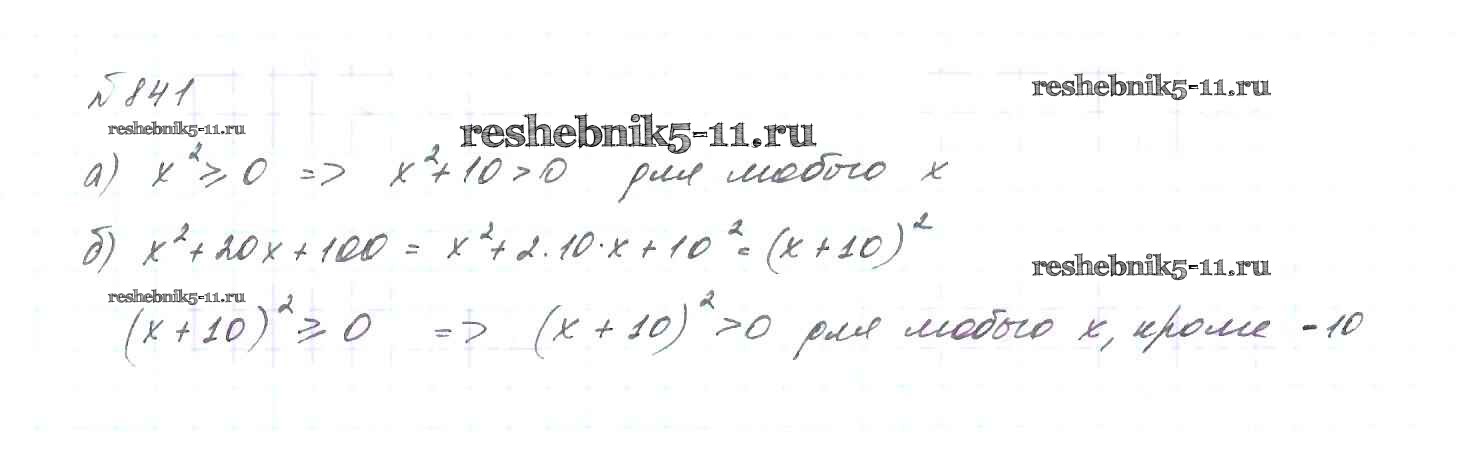 № 841
reshebnik5-11.ru
reshebnik5-11.ru
reshebnik5-11.ru
а) x² ≥ 0 => x² + 10 > 0 для любого x
б) x² + 20x + 100 = x² + 2·10·x + 10² = (x + 10)²
reshebnik5-11.ru
reshebnik5-11.ru
(x + 10)² ≥ 0 => (x + 10)² > 0 для любого x, кроме -10